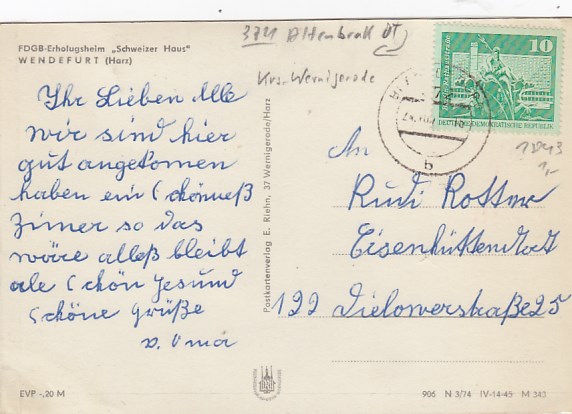 FDGB-Erholugsheim „Schweizer Haus"
WENDEFURT (Harz)
3711 Altenbrak ÜT
Krs. Wernigerode
10
DEUTSCHE DEMOKRATISCHE REPUBLIK
13943
1,-
b
Ihr Lieben Alle
wir sind hier
gut angekomen
haben ein schönneß
Zimer so das
wäre alleß bleibt
ale schön gesund
schöne Grüße
v. Oma
An
Rudi Rottner
Eisenhüttenstadt
122 Dielowerstraße 25
Postkartenverlag E. Riehn, 37 Wernigerode/Harz
EVP -,20 M
906 N 3/74 IV-14-45 M 343